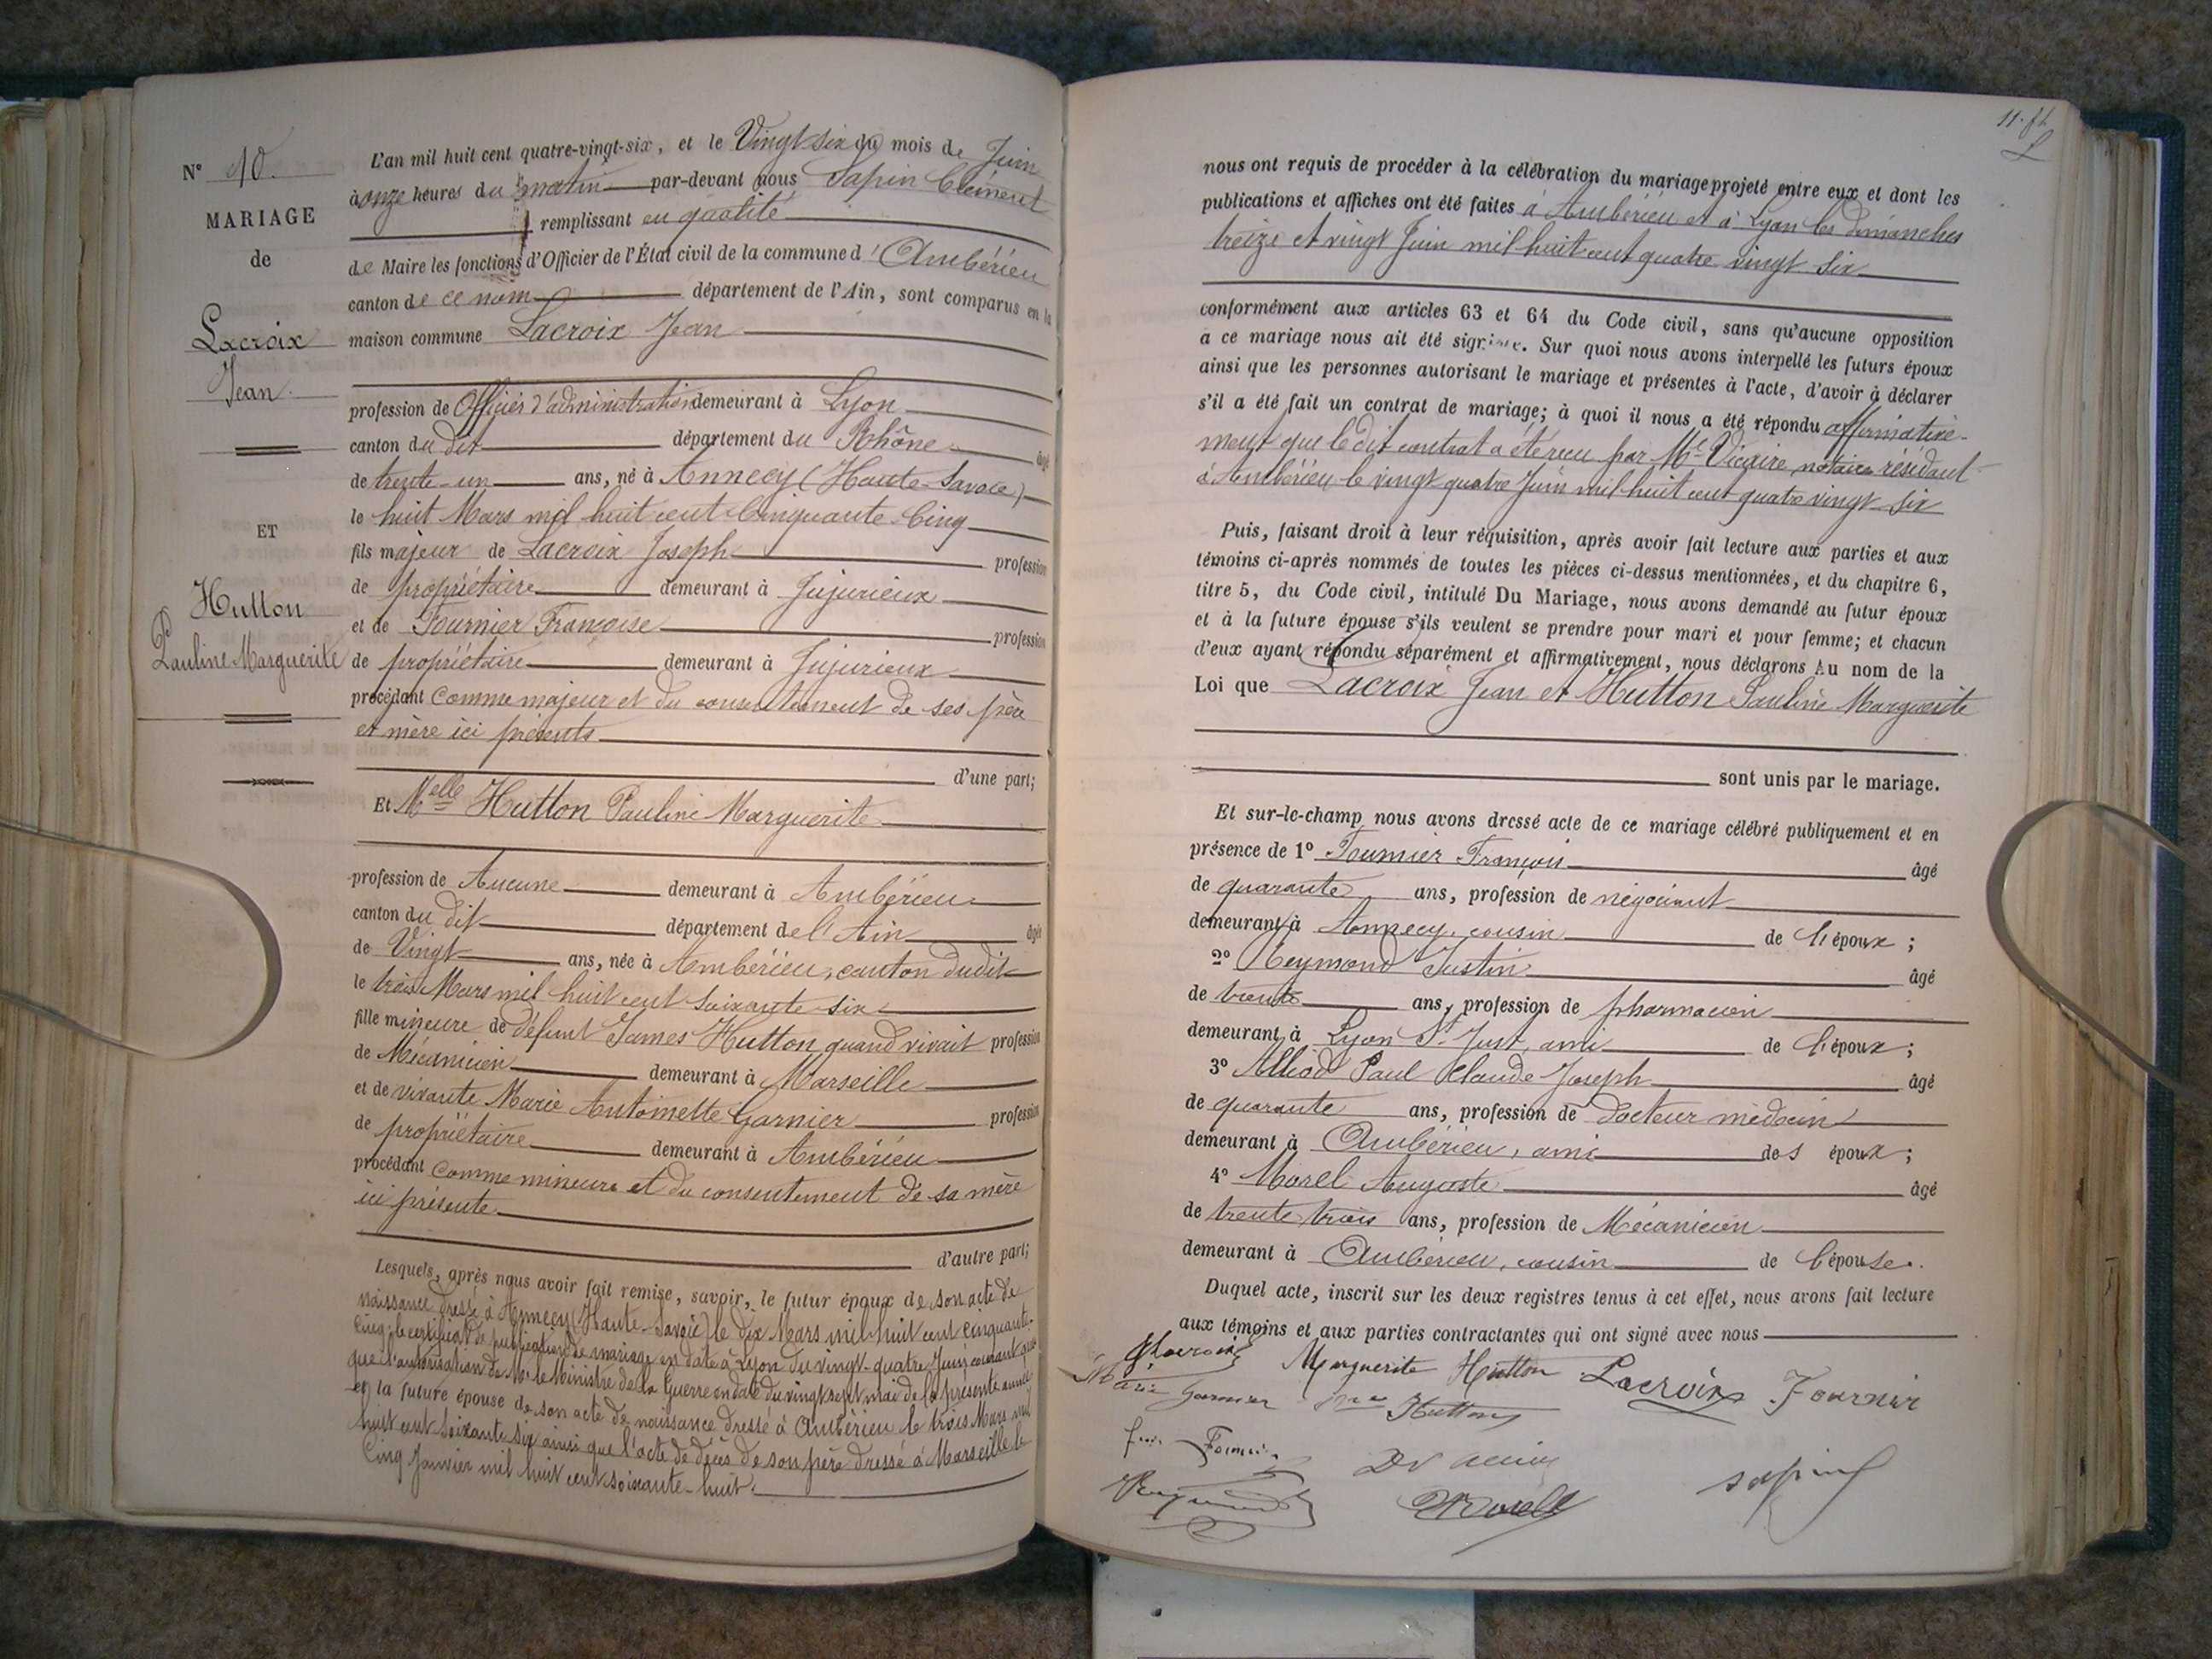 N° 10.
MARIAGE
de
Lacroix
Jean
ET
Hutton
Pauline Marguerite
L'an mil huit cent quatre-vingt-six, et le Vingt six du mois de Juin
à onze heures du matin par-devant nous Sapin Clément
remplissant en qualité
de Maire les fonctions d'Officier de l'État civil de la commune d'Ambérieu
canton de ce nom département de l'Ain, sont comparus en la
maison commune Lacroix Jean
profession de Officier d'administration demeurant à Lyon
canton du dit département du Rhône âgé
de trente-un ans, né à Annecy (Haute-Savoie)
le huit Mars mil huit cent Cinquante-Cinq
fils majeur de Lacroix Joseph profession
de propriétaire demeurant à Jujurieux
et de Fournier Françoise profession
de propriétaire demeurant à Jujurieux
procédant comme majeur et du consentement de ses père
et mère ici présents
d'une part;
Et Melle Hutton Pauline Marguerite
profession de Aucune demeurant à Ambérieu
canton du dit département de l'Ain âgée
de Vingt ans, née à Ambérieu, canton dudit
le trois Mars mil huit cent soixante-six
fille mineure de défunt James Hutton quand vivait profession
de Mécanicien demeurant à Marseille
et de vivante Marie Antoinette Garnier profession
de propriétaire demeurant à Ambérieu
procédant comme mineure et du consentement de sa mère
ici présente
d'autre part;
Lesquels, après nous avoir fait remise, savoir, le futur époux de son acte de
naissance dressé à Annecy (Haute-Savoie) le dix Mars mil huit cent cinquante-
cinq, le certificat de publication de mariage en date à Lyon du vingt-quatre Juin courant
que l'autorisation de Mr le Ministre de la Guerre en date du vingt sept mai de la présente année
et la future épouse de son acte de naissance dressé à Ambérieu le trois Mars mil
huit cent soixante six ainsi que l'acte de décès de son père dressé à Marseille le
Cinq Janvier mil huit cent soixante-huit.
nous ont requis de procéder à la célébration du mariage projeté entre eux et dont les
publications et affiches ont été faites à Ambérieu et à Lyon les dimanches
treize et vingt Juin mil huit cent quatre vingt six
conformément aux articles 63 et 64 du Code civil, sans qu'aucune opposition
a ce mariage nous ait été signifiée. Sur quoi nous avons interpellé les futurs époux
ainsi que les personnes autorisant le mariage et présentes à l'acte, d'avoir à déclarer
s'il a été fait un contrat de mariage; à quoi il nous a été répondu affirmative-
ment que le dit contrat a été reçu par Me Vicaire notaire résidant
à Ambérieu le vingt quatre Juin mil huit cent quatre vingt six
Puis, faisant droit à leur réquisition, après avoir fait lecture aux parties et aux
témoins ci-après nommés de toutes les pièces ci-dessus mentionnées, et du chapitre 6,
titre 5, du Code civil, intitulé Du Mariage, nous avons demandé au futur époux
et à la future épouse s'ils veulent se prendre pour mari et pour femme; et chacun
d'eux ayant répondu séparément et affirmativement, nous déclarons Au nom de la
Loi que Lacroix Jean et Hutton Pauline Marguerite
sont unis par le mariage.
Et sur-le-champ nous avons dressé acte de ce mariage célébré publiquement et en
présence de 1° Fournier François âgé
de quarante ans, profession de négociant
demeurant à Annecy, cousin de l'époux;
2° Reymond Justin âgé
de trente ans, profession de pharmacien
demeurant à Lyon St Just, ami de l'époux;
3° Alliod Paul Claude Joseph âgé
de quarante ans, profession de Docteur médecin
demeurant à Ambérieu, ami des époux;
4° Morel Auguste âgé
de trente trois ans, profession de Mécanicien
demeurant à Ambérieu, cousin de l'épouse.
Duquel acte, inscrit sur les deux registres tenus à cet effet, nous avons fait lecture
aux témoins et aux parties contractantes qui ont signé avec nous
Lacroix Marguerite Hutton Lacroix Fournier
Marie Garnier Hutton
Sapin
Reymond AMorel